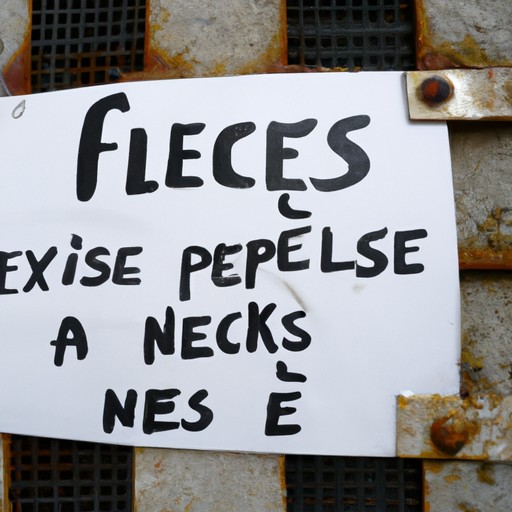 FLECES
EXISE PEPÈLSE
A NECKS
NES È